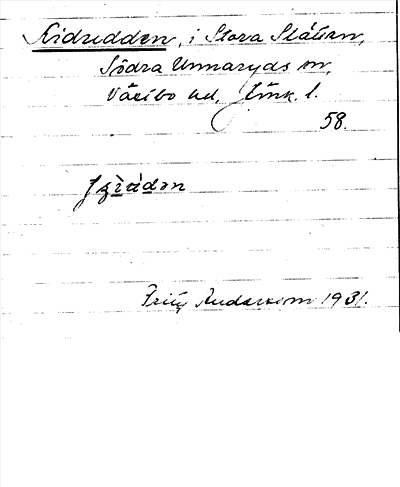 Kidrudden, i Stora Slåten,
Södra Unnaryds sn,
Västbo hd, Jönk. l.
58.
Fritz Andersson 1931.